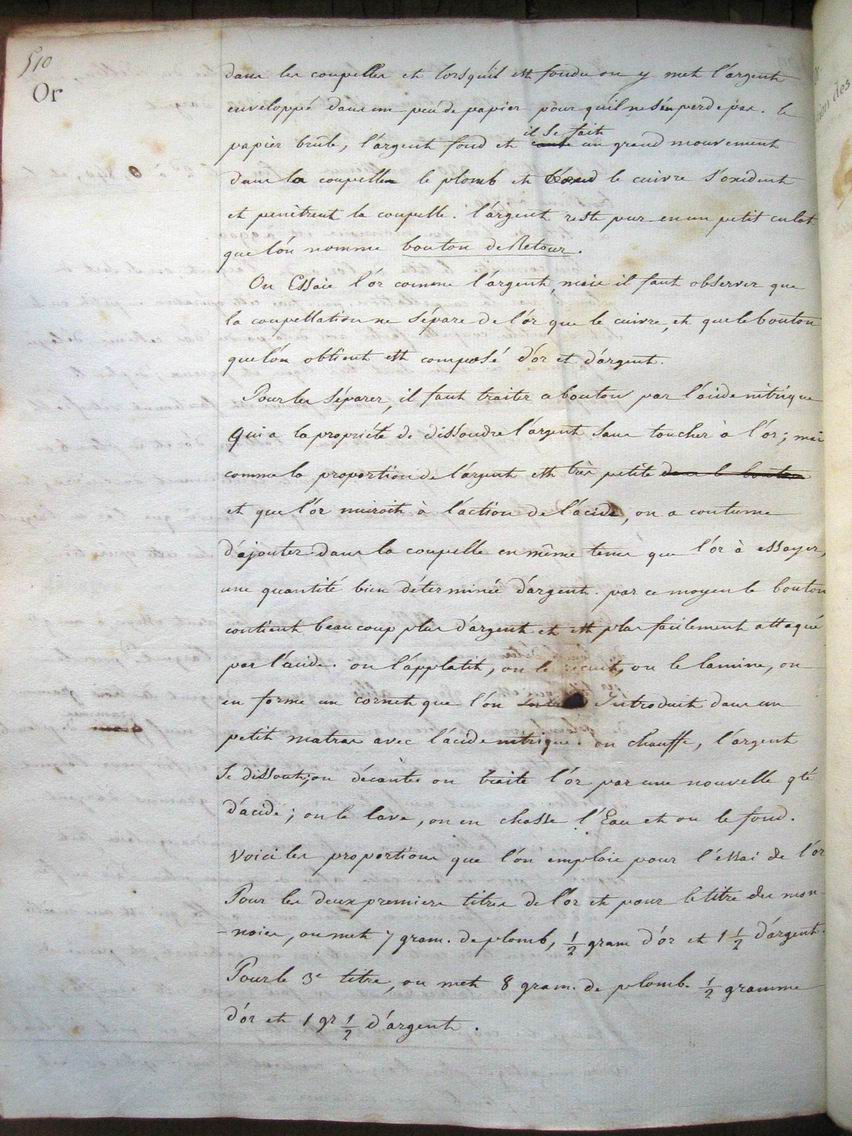 510
Or
dans les coupelles et lorsqu'il est fondu on y met l'argent
enveloppé dans un peu de papier pour qu'il ne s'en perde pas. le
il se fait
papier brûle, l'argent fond et un grand mouvement
dans la coupelle le plomb et le cuivre s'oxident
et penètrent la coupelle. l'argent reste pur en un petit culot
que l'on nomme bouton de Retour.
On Essaie l'or comme l'argent, mais il faut observer que
la coupellation ne sépare de l'or que le cuivre, et que le bouton
que l'on obtient est composé d'or et d'argent.
Pour les séparer, il faut traiter ce bouton par l'acide nitrique
qui a la propriété de dissoudre l'argent sans toucher à l'or ; mais
comme la proportion de l'argent est très petite dans le bouton
et que l'or nuiroit à l'action de l'acide, on a coutume
d'ajouter dans la coupelle en même tems que l'or à essayer,
une quantité bien déterminée d'argent. par ce moyen le bouton
contient beaucoup plus d'argent et est plus facilement attaqué
par l'acide. on l'applatit, on le recuit, on le lamine, on
en forme un cornet que l'on introduit dans un
petit matras avec l'acide nitrique. on chauffe, l'argent
se dissout ; on décante on traite l'or par une nouvelle qté
d'acide ; on le lave, on en chasse l'Eau et on le fond.
Voici les proportions que l'on emploie pour l'essai de l'or
Pour les deux premiers titres de l'or et pour le titre des mon-
-noies, on met 7 gram. de plomb, 1/2 gram d'or et 1 1/2 d'argent.
Pour le 3e titre, on met 8 gram. de plomb. 1/2 gramme
d'or et 1 gr 1/2 d'argent.